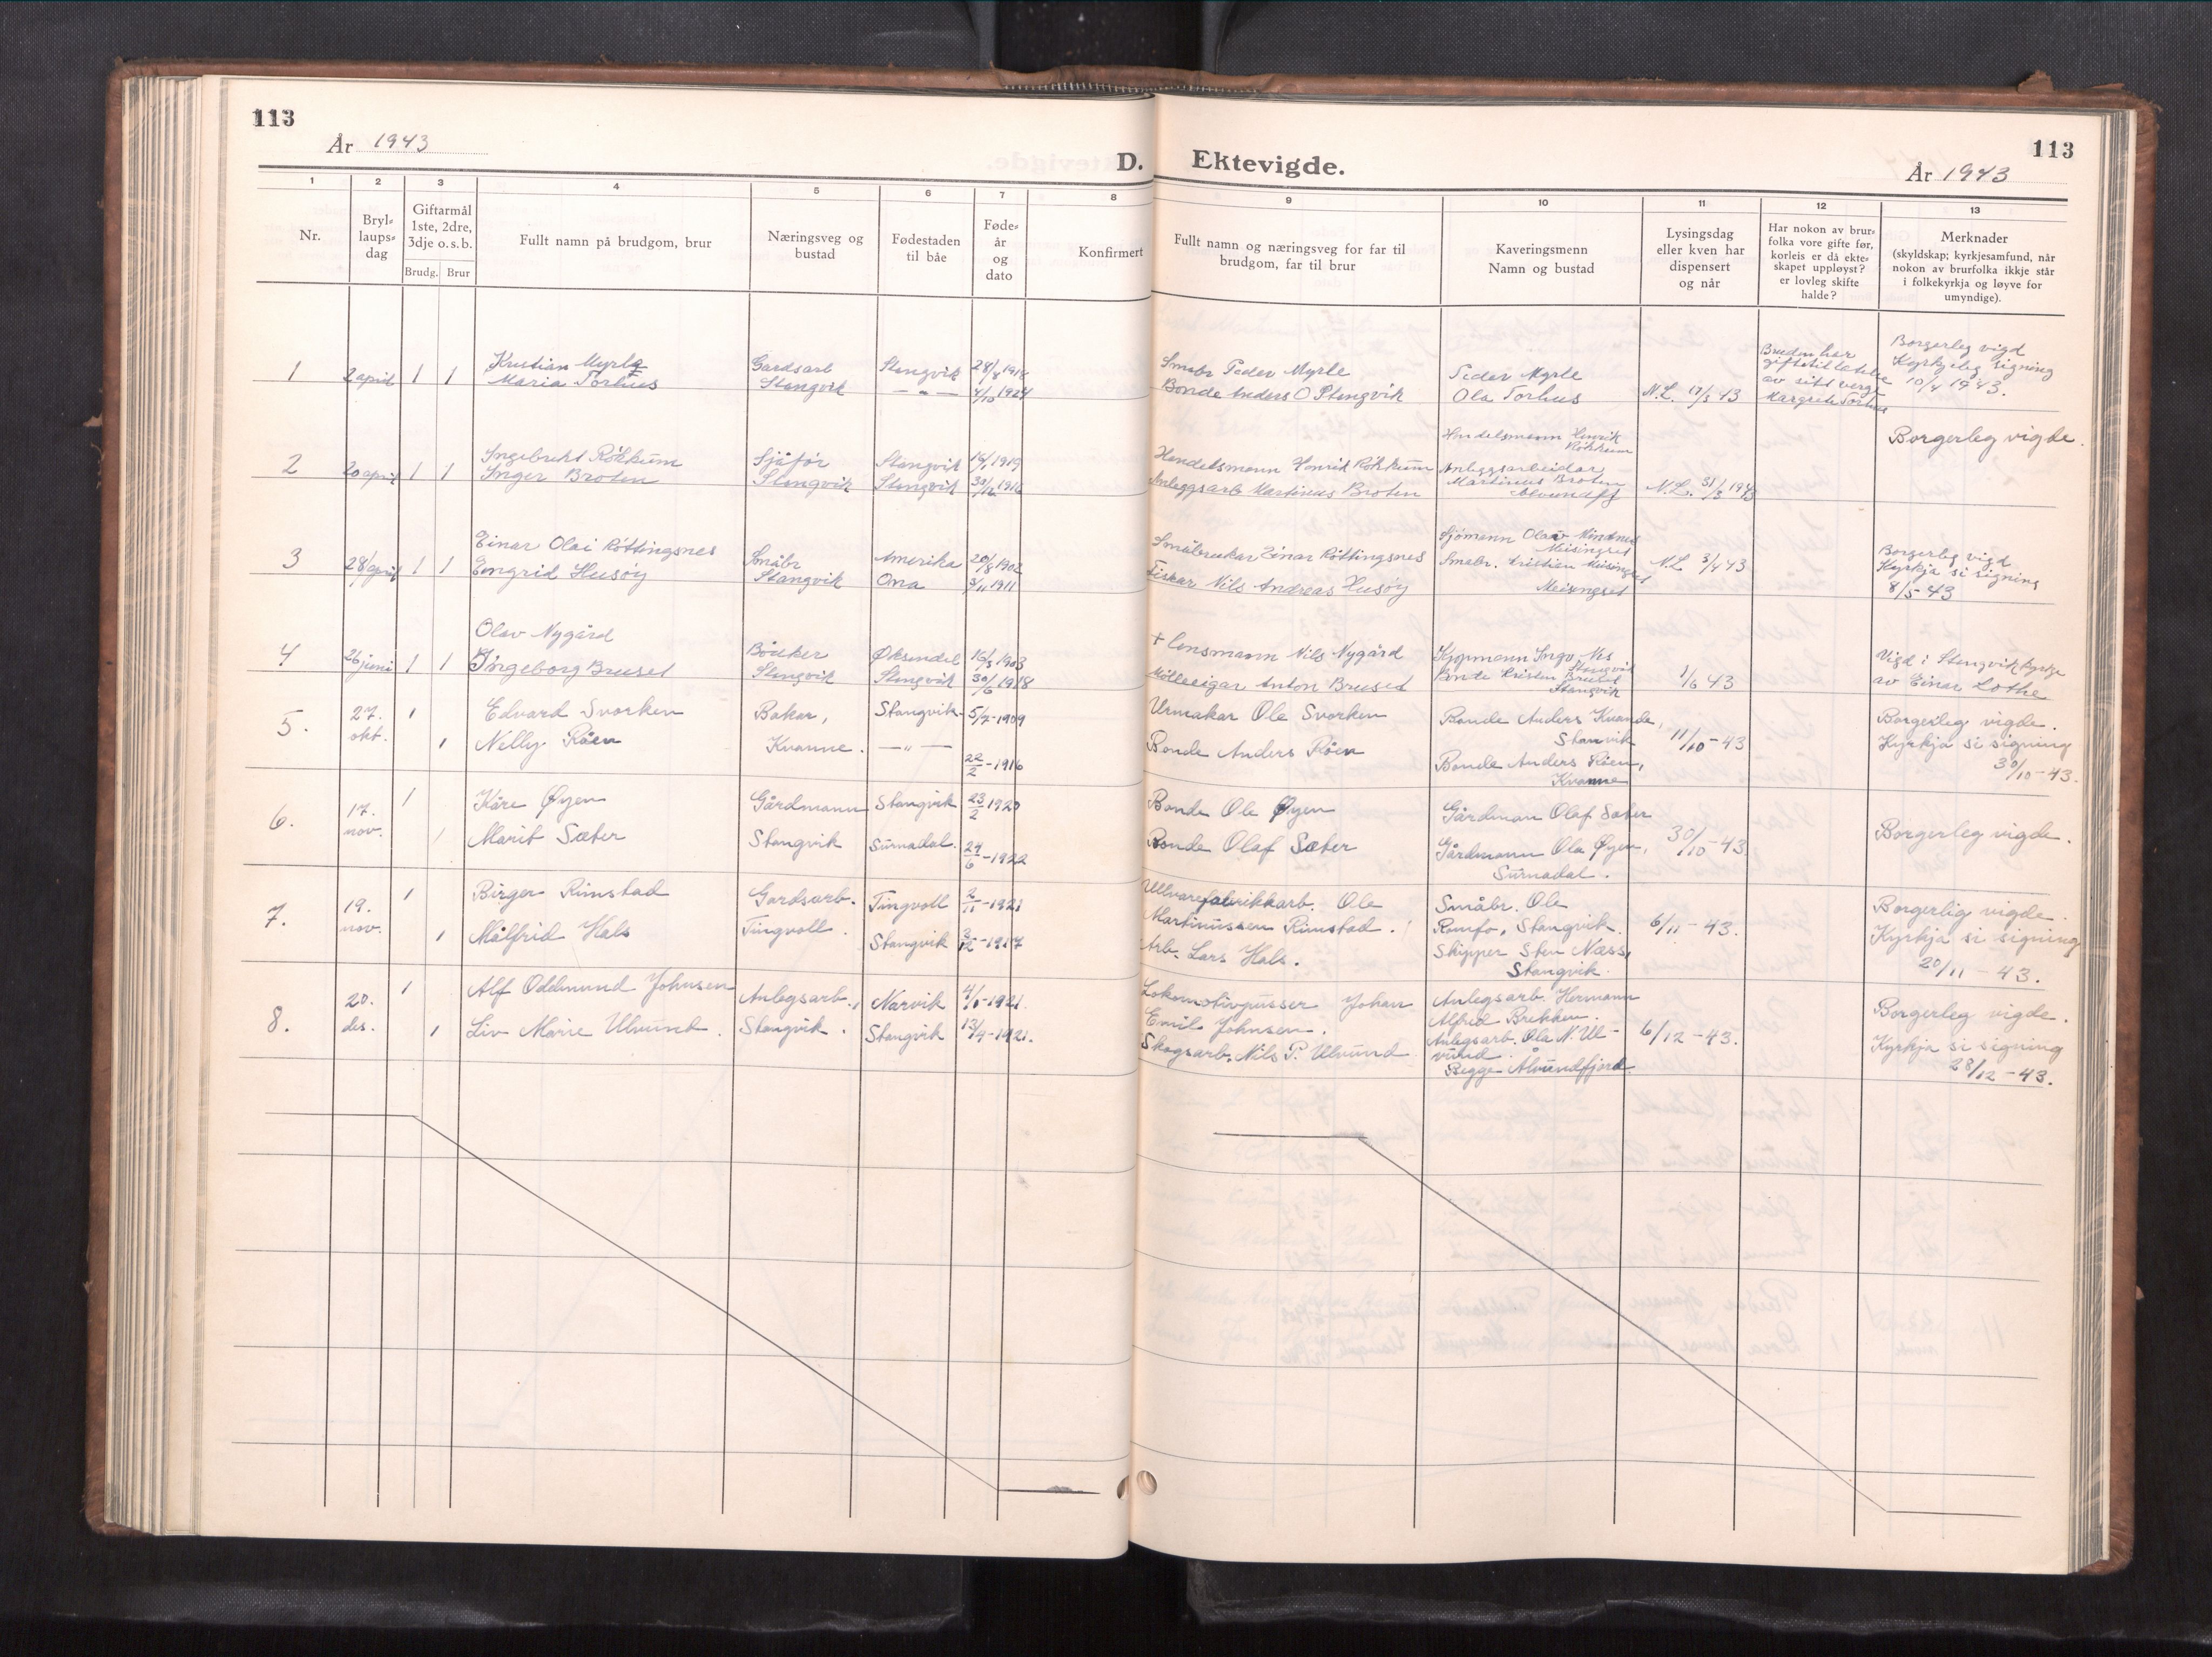 113
År 1943
D. Ektevigde.
113
År 1943
1 2 3 4 5 6 7 8 9 10 11 12 13
Nr.
Bryl-
laups-
dag
Giftarmål
1ste, 2dre,
3dje o. s. b.
Brudg. Brur
Fullt namn på brudgom, brur
Næringsveg og
bustad
Fødestaden
til båe
Føde-
år
og
dato
Konfirmert
Fullt namn og næringsveg for far til
brudgom, far til brur
Kaveringsmenn
Namn og bustad
Lysingsdag
eller kven har
dispensert
og når
Har nokon av brur-
folka vore gifte før,
korleis er då ekte-
skapet uppløyst?
er lovleg skifte
halde?
Merknader
(skyldskap; kyrkjesamfund, når
nokon av brurfolka ikkje står
i folkekyrkja og løyve for
umyndige).
1 2 april 1 1
Kristian Myrle
Maria Torhus
Gardsarb
Stangvik
Stangvik
— " —
28/8 1918
4/10 1924
Småbr Peder Myrle
Bonde Anders O Stangvik
Peder Myrle
Ola Torhus
N.L. 17/3 43
Bruden har
giftetillatelse
av sitt verge
Margrete Torhus
Borgerleg vigd
Kyrkjeleg signing
10/4 1943.
2 20 april 1 1
Ingebrikt Røkkum
Inger Broten
Sjåfør
Stangvik
Stangvik
Stangvik
Handelsmann Henrik Røkkum
Anleggsarb Martinus Broten
Handelsmann Henrik
Røkkum
Anleggsarbeidar
Martinus Broten
Ålvundfj
N.L. 31/3 1943
Borgerleg vigde.
3 28 april 1 1
Einar Olai Røttingsnes
Engrid Husøy
Småbr
Stangvik
Amerika
Ona
20/8 1902
3/11 1911
Småbrukar Einar Røttingsnes
Fiskar Nils Andreas Husøy
Sjømann Olav Mindnes
Meisingset
Småbr. Kristian Meisingset
Meisingset
N.L 3/4 43
Borgerleg vigd
Kyrkja si signing
8/5 43
4 26 juni 1 1
Olav Nygård
Ingeborg Bruset
Bonker
Stangvik
Øksendal
Stangvik
16/3 1903
30/6 1918
+ Lensmann Nils Nygård
Mølleeigar Anton Bruset
Kjøpmann Ingv Nes
Stangvik
Bonde Kristen Bruset
Stangvik
1/6 43
Vigd i Stangvik kyrkje
av Einar Lothe
5. 27. okt. 1 1
Edvard Svorken
Nelly Røen
Bakar,
Kvanne.
Stangvik
— " —
5/7-1909
22/2-1916
Urmakar Ole Svorken
Bonde Anders Røen
Bonde Anders Kvande,
Stanvik
Bonde Anders Røen,
Kvanne
11/10-43
Borgerleg vigde.
Kyrkja si signing
30/10-43.
6. 17. nov. 1 1
Kåre Øyen
Marit Sæter
Gårdmann
Stangvik
Stangvik
Surnadal.
23/2-1920
24/6-1922
Bonde Ole Øyen
Bonde Olaf Sæter
Gårdman Olaf Sæter
Gårdmann Ola Øyen,
Surnadal.
30/10-43.
Borgerleg vigde.
7. 19. nov. 1 1
Birger Rimstad
Målfrid Hals
Gardsarb.
Tingvoll.
Tingvoll
Stangvik
2/11-1921
3/12-1917
Ullvarefabrikkarb. Ole
Martinussen Rimstad.
Arb. Lars Hals.
Småbr. Ole
Romfo, Stangvik.
Skipper Sten Næss,
Stangvik.
6/11-43.
Borgerlig vigde.
Kyrkja si signing
20/11-43.
8. 20. des. 1 1
Alf Oddmund Johnsen
Liv Marie Ulvund.
Anlegsarb.,
Stangvik.
Narvik
Stangvik
13/4-1921.
Lokomotivpusser Johan
Emil Johnsen.
Skogsarb. Nils P. Ulvund
Anlegsarb. Hermann
Alfred Brekken.
Anlegsarb. Ola N. Ul-
vund.
Begge Ålvundfjord.
6/12-43.
Borgerleg vigde.
Kyrkja si signing
28/12-43.